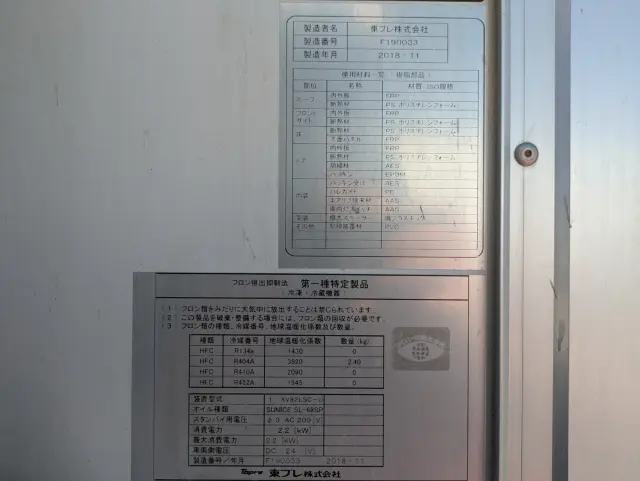 製造者名 東プレ株式会社
製造番号 F190033
製造年月 2018-11
使用材料一覧（樹脂部品）
部位 名称 材質:ISO規格
ルーフ 内外板 FRP
断熱材 PS.ポリスチレンフォーム
フロント 内外板 FRP
サイド 断熱材 PS.ポリスチレンフォーム
床 断熱材 PS.ポリスチレンフォーム
FRP
ドア 内外板 FRP
断熱材 PS.ポリスチレンフォーム
AES
パッキン EPDM
パッキン受け AES
内装 PE
AAS
AAS
その他 PVC
フロン排出抑制法 第一種特定製品
（冷凍・冷蔵機器）
(1) フロン類をみだりに大気中に放出することは禁じられています。
(2) この製品を廃棄・整備する場合には、フロン類の回収が必要です。
(3) フロン類の種類、冷媒番号、地球温暖化係数及び数量。
種類 冷媒番号 地球温暖化係数 数量(kg)
HFC R134a 1430 0
HFC R404A 3920 2.40
HFC R410A 2090 0
HFC R452A 1945 0
装置型式
オイル種類 SUNICE SL-68SP
スタンバイ用電圧 φ3 AC 200 [V]
消費電力 2.2 [kW]
最大消費電力 2.2 [kW]
車両側電圧 DC 24 [V]
製造番号/年月 F190033 2018-11
Topre 東プレ株式会社